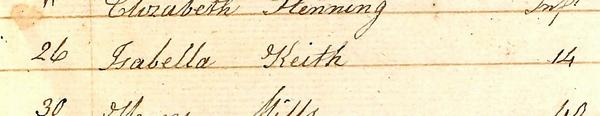 Elizabeth Henning Inft
26 Isabella Keith 14
30 Mills 40